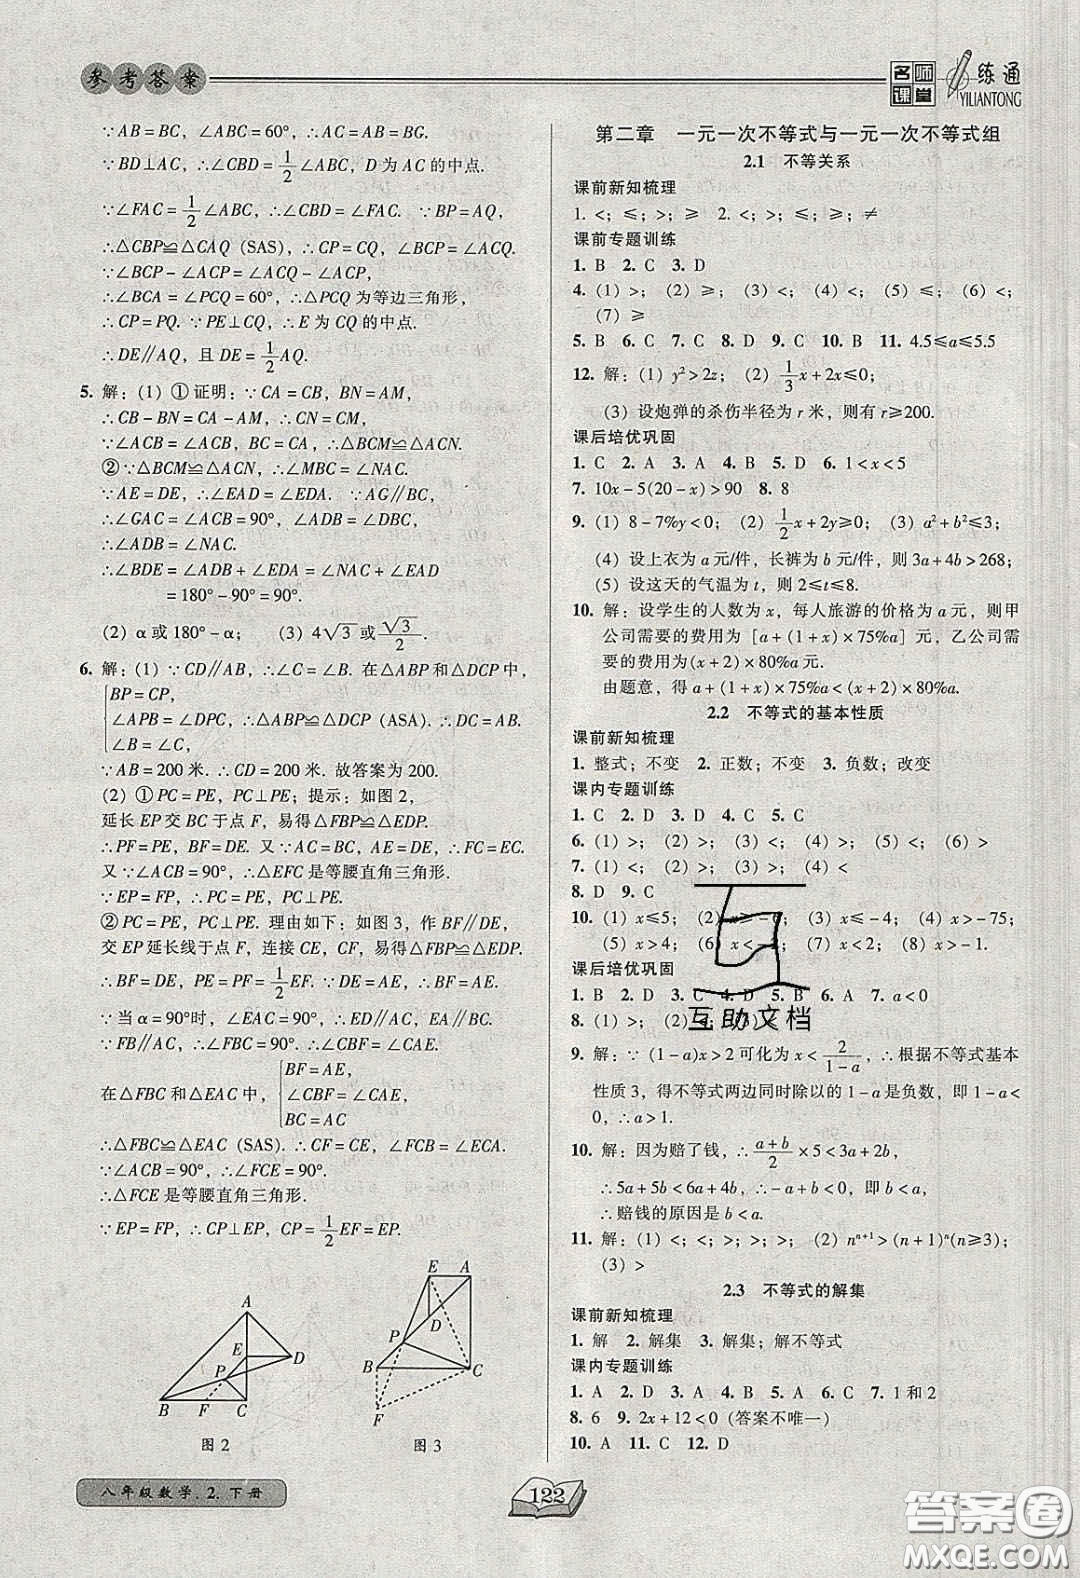 参考答案
名师课堂
一练通
YILIANTONG
∵AB=BC，∠ABC=60°，∴AC=BC.
∵BD⊥AC，∴∠CBD=1/2∠ABC，D为AC的中点.
∵∠FAC=1/2∠ABC，∴∠CBD=∠FAC. ∵BP=AQ，
∴△CBP≌△CAQ（SAS），∴CP=CQ，∠BCP=∠ACQ.
∵∠BCP-∠ACP=∠ACQ-∠ACP，
∴∠BCA=∠PCQ=60°，∴△PCQ为等边三角形，
∴CP=PQ. ∵PE⊥CQ，∴E为CQ的中点.
∴DE∥AQ，且DE=1/2AQ.
5. 解：（1）①证明：∵CA=CB，BN=AM，
∴CB-BN=CA-AM，∴CN=CM.
∵∠ACB=∠ACB，BC=CA，∴△BCM≌△ACN.
②∵△BCM≌△ACN，∴∠MBC=∠NAC.
∵AE=DE，∴∠EAD=∠EDA. ∵AG∥BC，
∴∠GAC=∠ACB=90°，∠ADB=∠DBC，
∴∠ADB=∠NAC.
∴∠BDE=∠ADB+∠EDA=∠NAC+∠EAD
=180°-90°=90°.
（2）α或180°-α； （3）4√3或√3/2.
6. 解：（1）∵CD∥AB，∴∠C=∠B. 在△ABP和△DCP中，
BP=CP，
∠APB=∠DPC，∴△ABP≌△DCP（ASA）. ∴DC=AB.
∠B=∠C，
∵AB=200米. ∴CD=200米. 故答案为200.
（2）①PC=PE，PC⊥PE；提示：如图2，
延长EP交BC于点F，易得△FBP≌△EDP.
∴PF=PE，BF=DE. 又∵AC=BC，AE=DE，∴FC=EC.
又∵∠ACB=90°，∴△EFC是等腰直角三角形.
∵EP=FP，∴PC=PE，PC⊥PE.
②PC=PE，PC⊥PE. 理由如下：如图3，作BF∥DE，
交EP延长线于点F，连接CE，CF，易得△FBP≌△EDP.
∴BF=DE，PE=PF=1/2EF. ∵DE=AE，∴BF=AE.
∵当α=90°时，∠EAC=90°，∴ED∥AC，EA∥BC.
∵FB∥AC，∴∠FBC=90°. ∴∠CBF=∠CAE.
在△FBC和△EAC中，
BF=AE，
∠CBF=∠CAE，
BC=AC
∴△FBC≌△EAC（SAS）. ∴CF=CE，∠FCB=∠ECA.
∵∠ACB=90°，∴∠FCE=90°.
∴△FCE是等腰直角三角形.
∵EP=FP，∴CP⊥EP，CP=1/2EF=EP.
A
E
D
P
B
F
C
图2
E
A
D
P
B
C
F
图3
第二章 一元一次不等式与一元一次不等式组
2.1 不等关系
课前新知梳理
1. <；≤；>；≥ 2. <；>；≤；≥；≠
课前专题训练
1. B 2. C 3. D
4. （1）>； （2）≥； （3）<； （4）<； （5）≤； （6）<；
（7）≥
5. B 6. B 7. C 8. D 9. C 10. B 11. 4.5≤a≤5.5
12. 解：（1）y²>2z；（2）1/3x+2x≤0；
（3）设炮弹的杀伤半径为r米，则有r≥200.
课后培优巩固
1. C 2. A 3. A 4. B 5. D 6. 1<x<5
7. 10x-5(20-x)>90 8. 8
9. （1）8-7%y<0；（2）1/2x+2y≥0；（3）a²+b²≤3；
（4）设上衣为a元/件，长裤为b元/件，则3a+4b>268；
（5）设这天的气温为t，则2≤t≤8.
10. 解：设学生的人数为x，每人旅游的价格为a元，则甲
公司需要的费用为[a+(1+x)×75%a]元，乙公司需
要的费用为(x+2)×80%a元.
由题意，得a+(1+x)×75%a<(x+2)×80%a.
2.2 不等式的基本性质
课前新知梳理
1. 整式；不变 2. 正数；不变 3. 负数；改变
课内专题训练
1. C 2. D 3. D 4. D 5. C
6. （1）>；（2）>；（3）<；（4）>；（5）<；（6）>
7. （1）<；（2）>；（3）>；（4）<
8. D 9. C
10. （1）x≤5；（2）x≥ （3）x≤-4；（4）x>-75；
（5）x>4；（6）x< （7）x<2；（8）x>-1.
课后培优巩固
1. B 2. D 3. C 4. D 5. B 6. A 7. a<0
8. （1）>；（2） （3）
9. 解：∵(1-a)x>2可化为x<2/(1-a)，∴根据不等式基本
性质3，得不等式两边同时除以的1-a是负数，即1-a<
0，∴a>1.
10. 解：因为赔了钱，∴(a+b)/2×5<3a+2b，
∴5a+5b<6a+4b，∴-a+b<0，即b<a，
∴赔钱的原因是b<a.
11. 解：（1）<；<；>；>；>；（2）nⁿ⁺¹>(n+1)ⁿ(n≥3)；
（3）>
2.3 不等式的解集
课前新知梳理
1. 解 2. 解集 3. 解集；解不等式
课内专题训练
1. A 2. D 3. A 4. B 5. A 6. C 7. 1和2
8. 6 9. 2x+12<0（答案不唯一）
10. A 11. C 12. D
互助文档
八年级数学.2.下册
122
答案圈
MXQE.COM